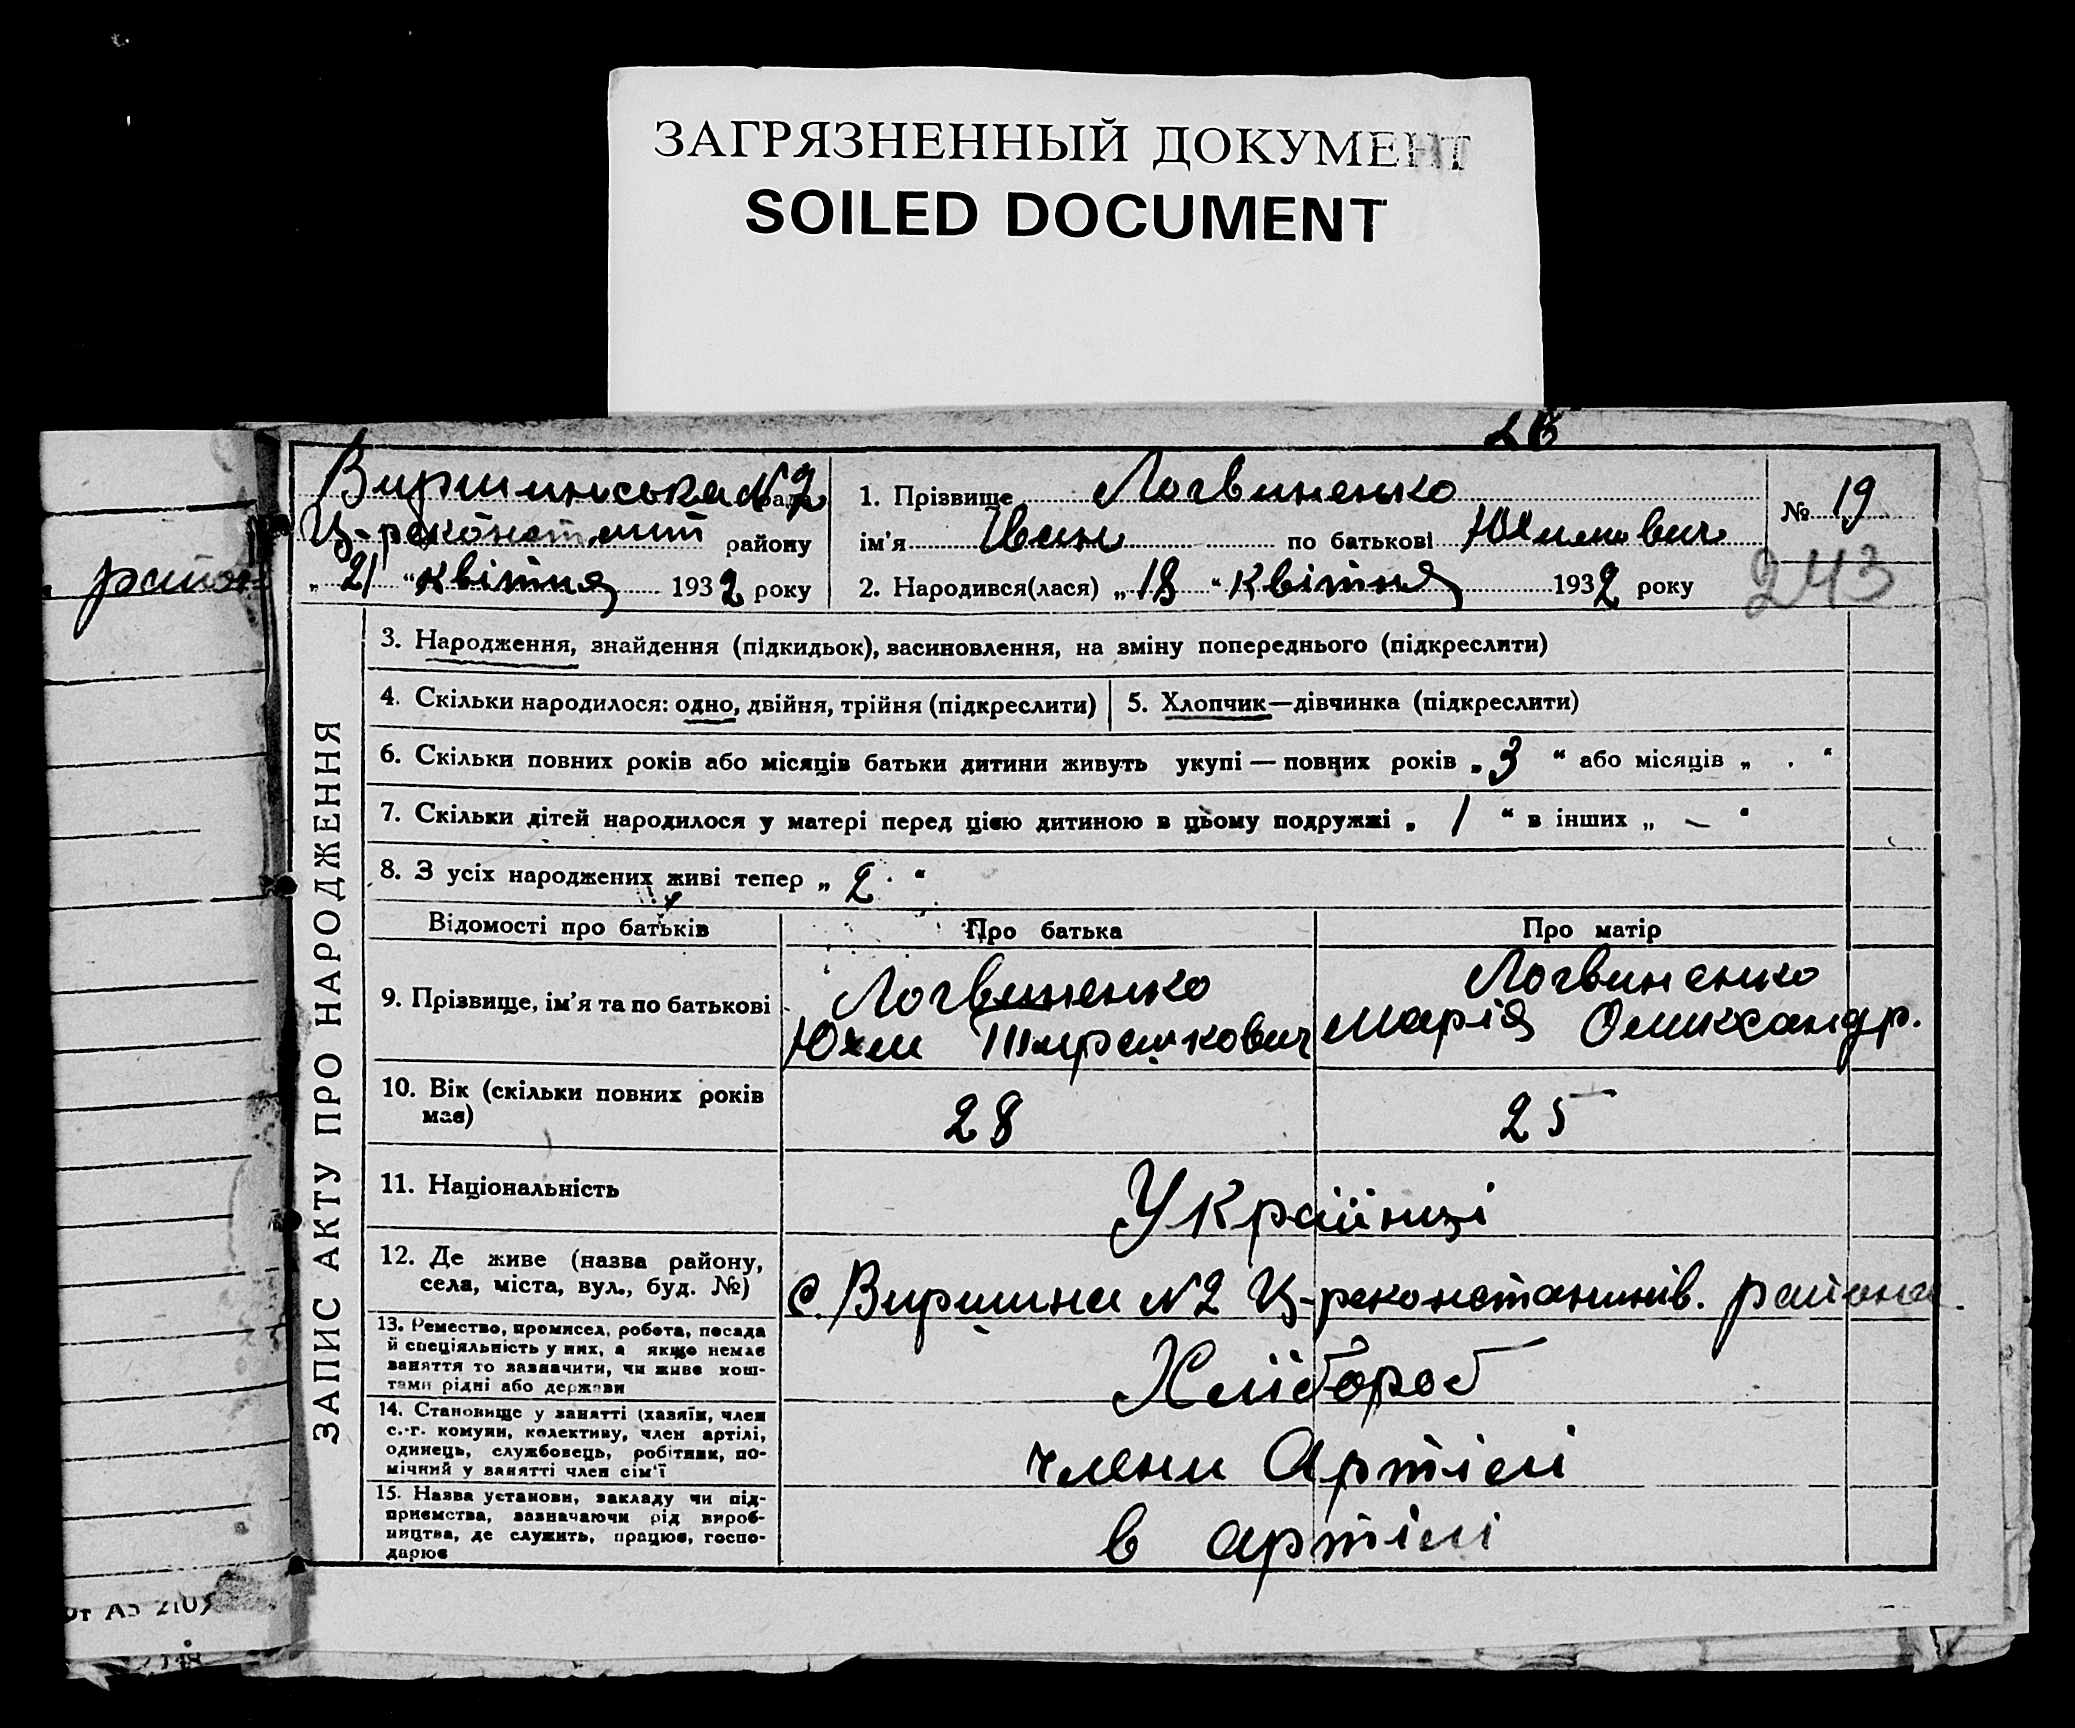 ЗАГРЯЗНЕННЫЙ ДОКУМЕНТ
SOILED DOCUMENT
района
рада №2
району
„ 21 “ квітня 1932 року
1. Прізвище Логвиненко
ім'я Іван по батькові Юхимович
2. Народився(лася) „ 18 “ Квітня 1932 року
№ 19
243
ЗАПИС АКТУ ПРО НАРОДЖЕННЯ
3. Народження, знайдення (підкидьок), васиновлення, на зміну попереднього (підкреслити)
4. Скільки народилося: одно, двійня, трійня (підкреслити)
5. Хлопчик—дівчинка (підкреслити)
6. Скільки повних років або місяців батьки дитини живуть укупі — повних років „ 3 “ або місяців „ . “
7. Скільки дітей народилося у матері перед цією дитиною в цьому подружжі „ 1 “ в інших „ — “
8. З усіх народжених живі тепер „ 2 “
Відомості про батьків
Про батька
Про матір
9. Прізвище, ім'я та по батькові
Логвиненко
Юхим
Логвиненко
Марія Олександр.
10. Вік (скільки повних років
має)
28
25
11. Національність
Українці
12. Де живе (назва району,
села, міста, вул., буд. №)
с. Виришина №2 Ц-реконстантинів. района
13. Ремество, промисел, робота, посада
й спеціяльність у них, а якщо немає
заняття то зазначити, чи живе кош-
тами рідні або держави
Хлібороб
14. Становище у занятті (хазяїн, член
с.-г. комуни, колективу, член артілі,
одинець, службовець, робітник, по-
мічний у занятті член сім'ї
члени Артілі
15. Назва установи, закладу чи під-
приємства, зазначаючи рід вироб-
ництва, де служить, працює, госпо-
дарює
в артілі